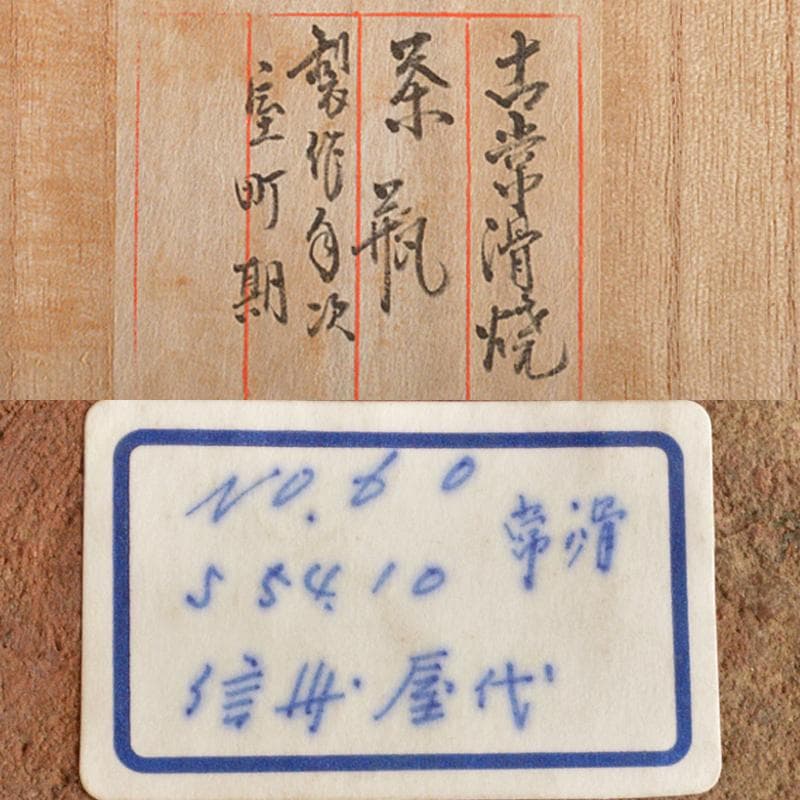 古常滑焼
茶瓶
製作年次
室町期
NO.60
常滑
S54.10
信州・屋代